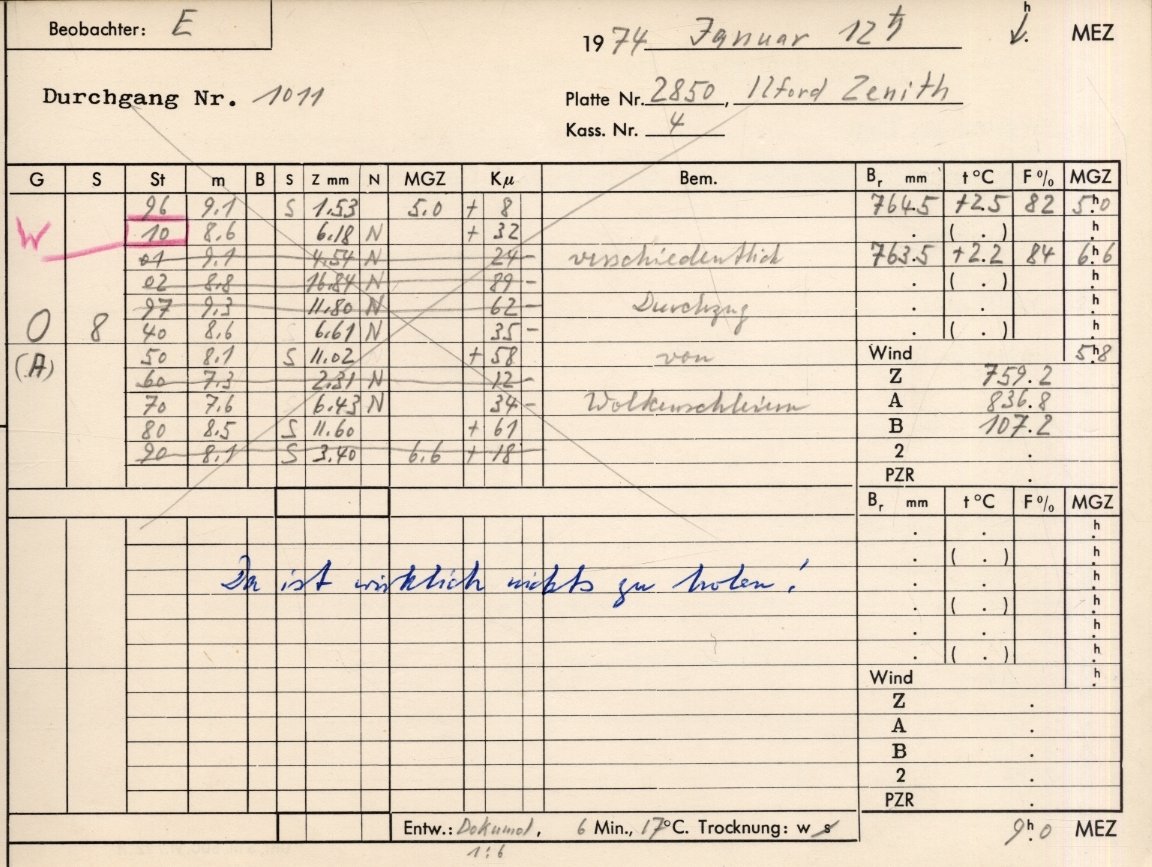 Beobachter: E
1974 Januar 12 h MEZ
Durchgang Nr. 1011
Platte Nr. 2850, Ilford Zenith
Kass. Nr. 4
G S St m B S Z mm N MGZ Kμ Bem. Br mm t °C F % MGZ
96 9.1 S 1.53 5.0 + 8 764.5 +2.5 82 5h.0
W 10 8.6 6.18 N + 32 . ( . ) h.
01 9.1 4.54 N 24 - verschiedentlich 763.5 +2.2 84 6h.6
02 8.8 16.84 N 89 - . ( . ) h.
97 9.3 11.80 N 62 - Durchzug . . h.
O 8 40 8.6 6.61 N 35 - . ( . ) h.
(A) 50 8.1 S 11.02 + 58 von Wind 5h.8
60 7.3 2.31 N 12 - Z 759.2
70 7.6 6.43 N 34 - Wolkenschleiern A 836.8
80 8.5 S 11.60 + 61 B 107.2
90 8.1 S 3.40 6.6 + 18 2 .
PZR .
Br mm t °C F % MGZ
. . h.
. ( . ) h.
Da ist wirklich nichts zu holen! . . h.
. ( . ) h.
. . h.
. ( . ) h.
Wind h.
Z .
A .
B .
2 .
PZR .
Entw.: Dokumol, 6 Min., 17°C. Trocknung: w s 9h.0 MEZ
1:6